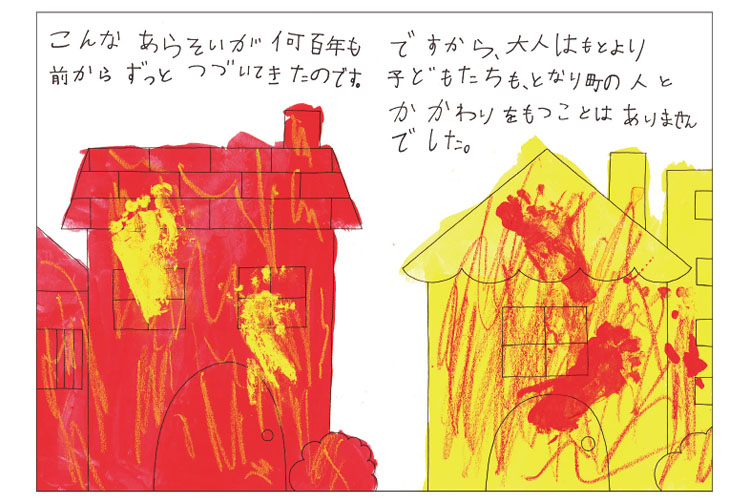 こんな あらそいが 何百年も
前から ずっと つづいてきたのです。
ですから、大人はもとより
子どもたちも、となり町の 人と
かかわりをもつことは ありません
でした。